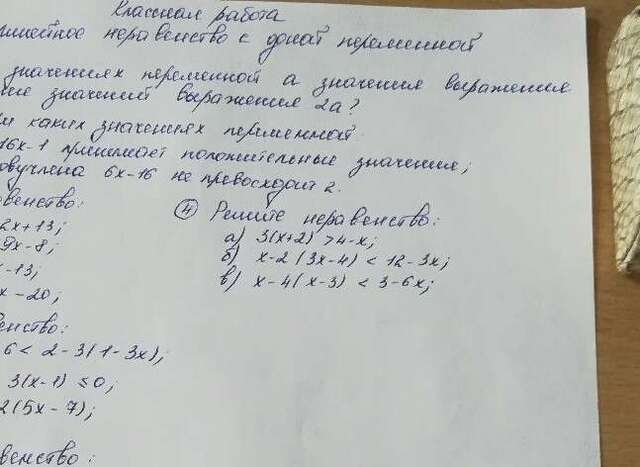 Классная работа
линейное неравенство с одной переменной
значениях переменной a значения выражения
значений выражения 2a?
каких значениях переменной
16x-1 принимает положительные значения;
двучлена 6x-16 не превосходит 2.
2x+13;
9x-8;
-13;
x-20;
6 < 2-3(1-3x);
3(x-1) ≤0;
2(5x-7);
④ Решите неравенство:
а) 3(x+2) >4-x;
б) x-2(3x-4) < 12-3x;
в) x-4(x-3) < 3-6x;